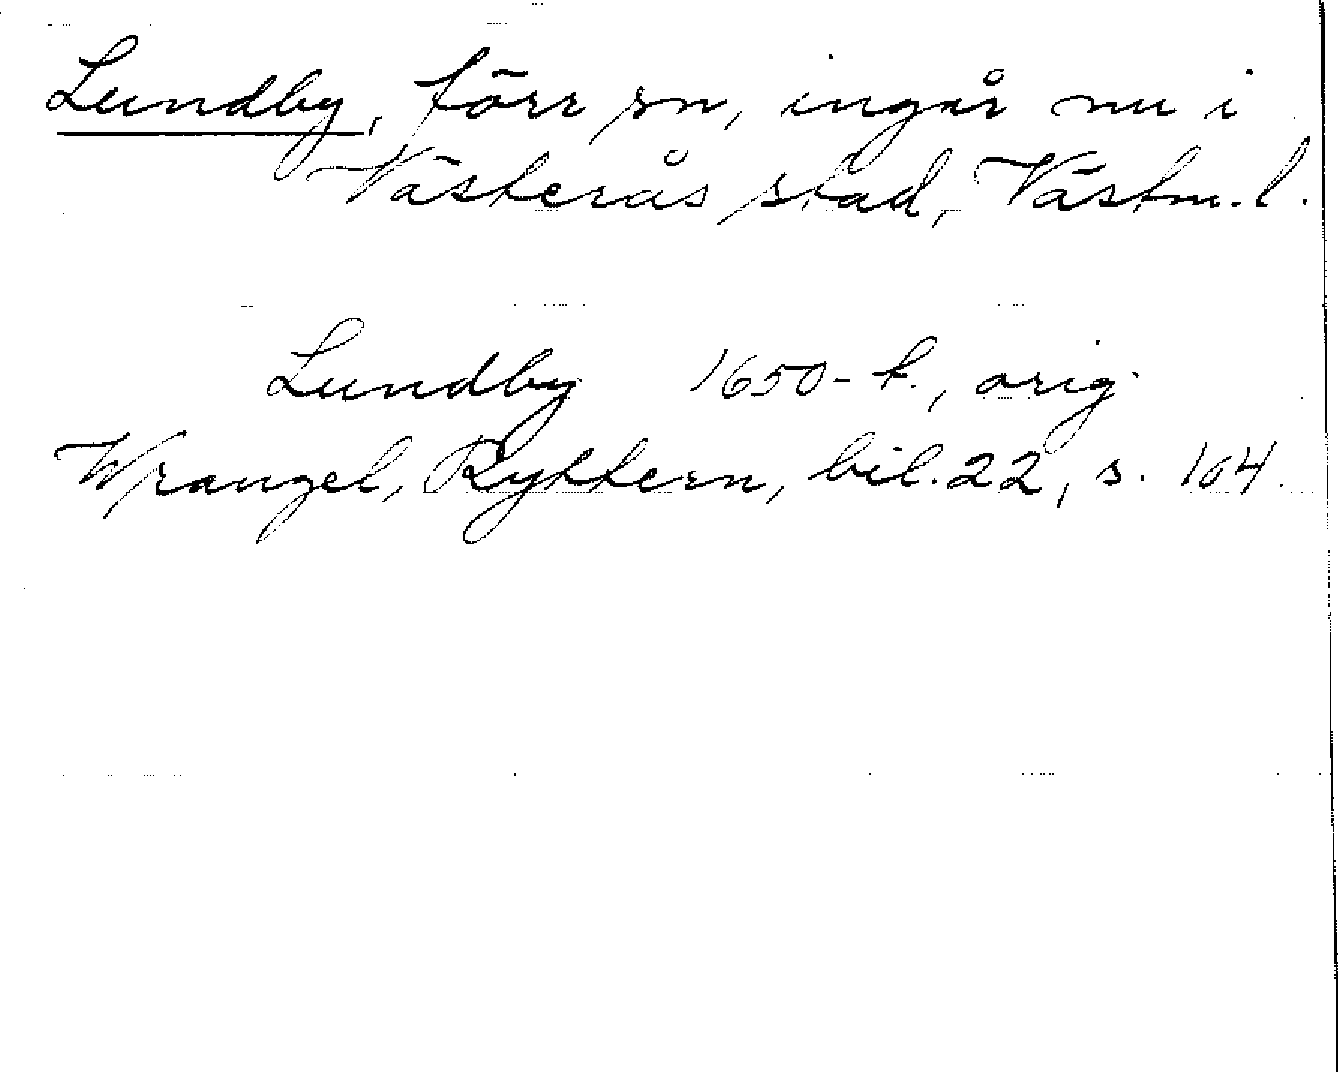 Lundby, förr sn, ingår nu i
Västerås stad, Västm. l.
Lundby 1650-t., orig.
Wrangel, Ryttern, bil. 22, s. 104.